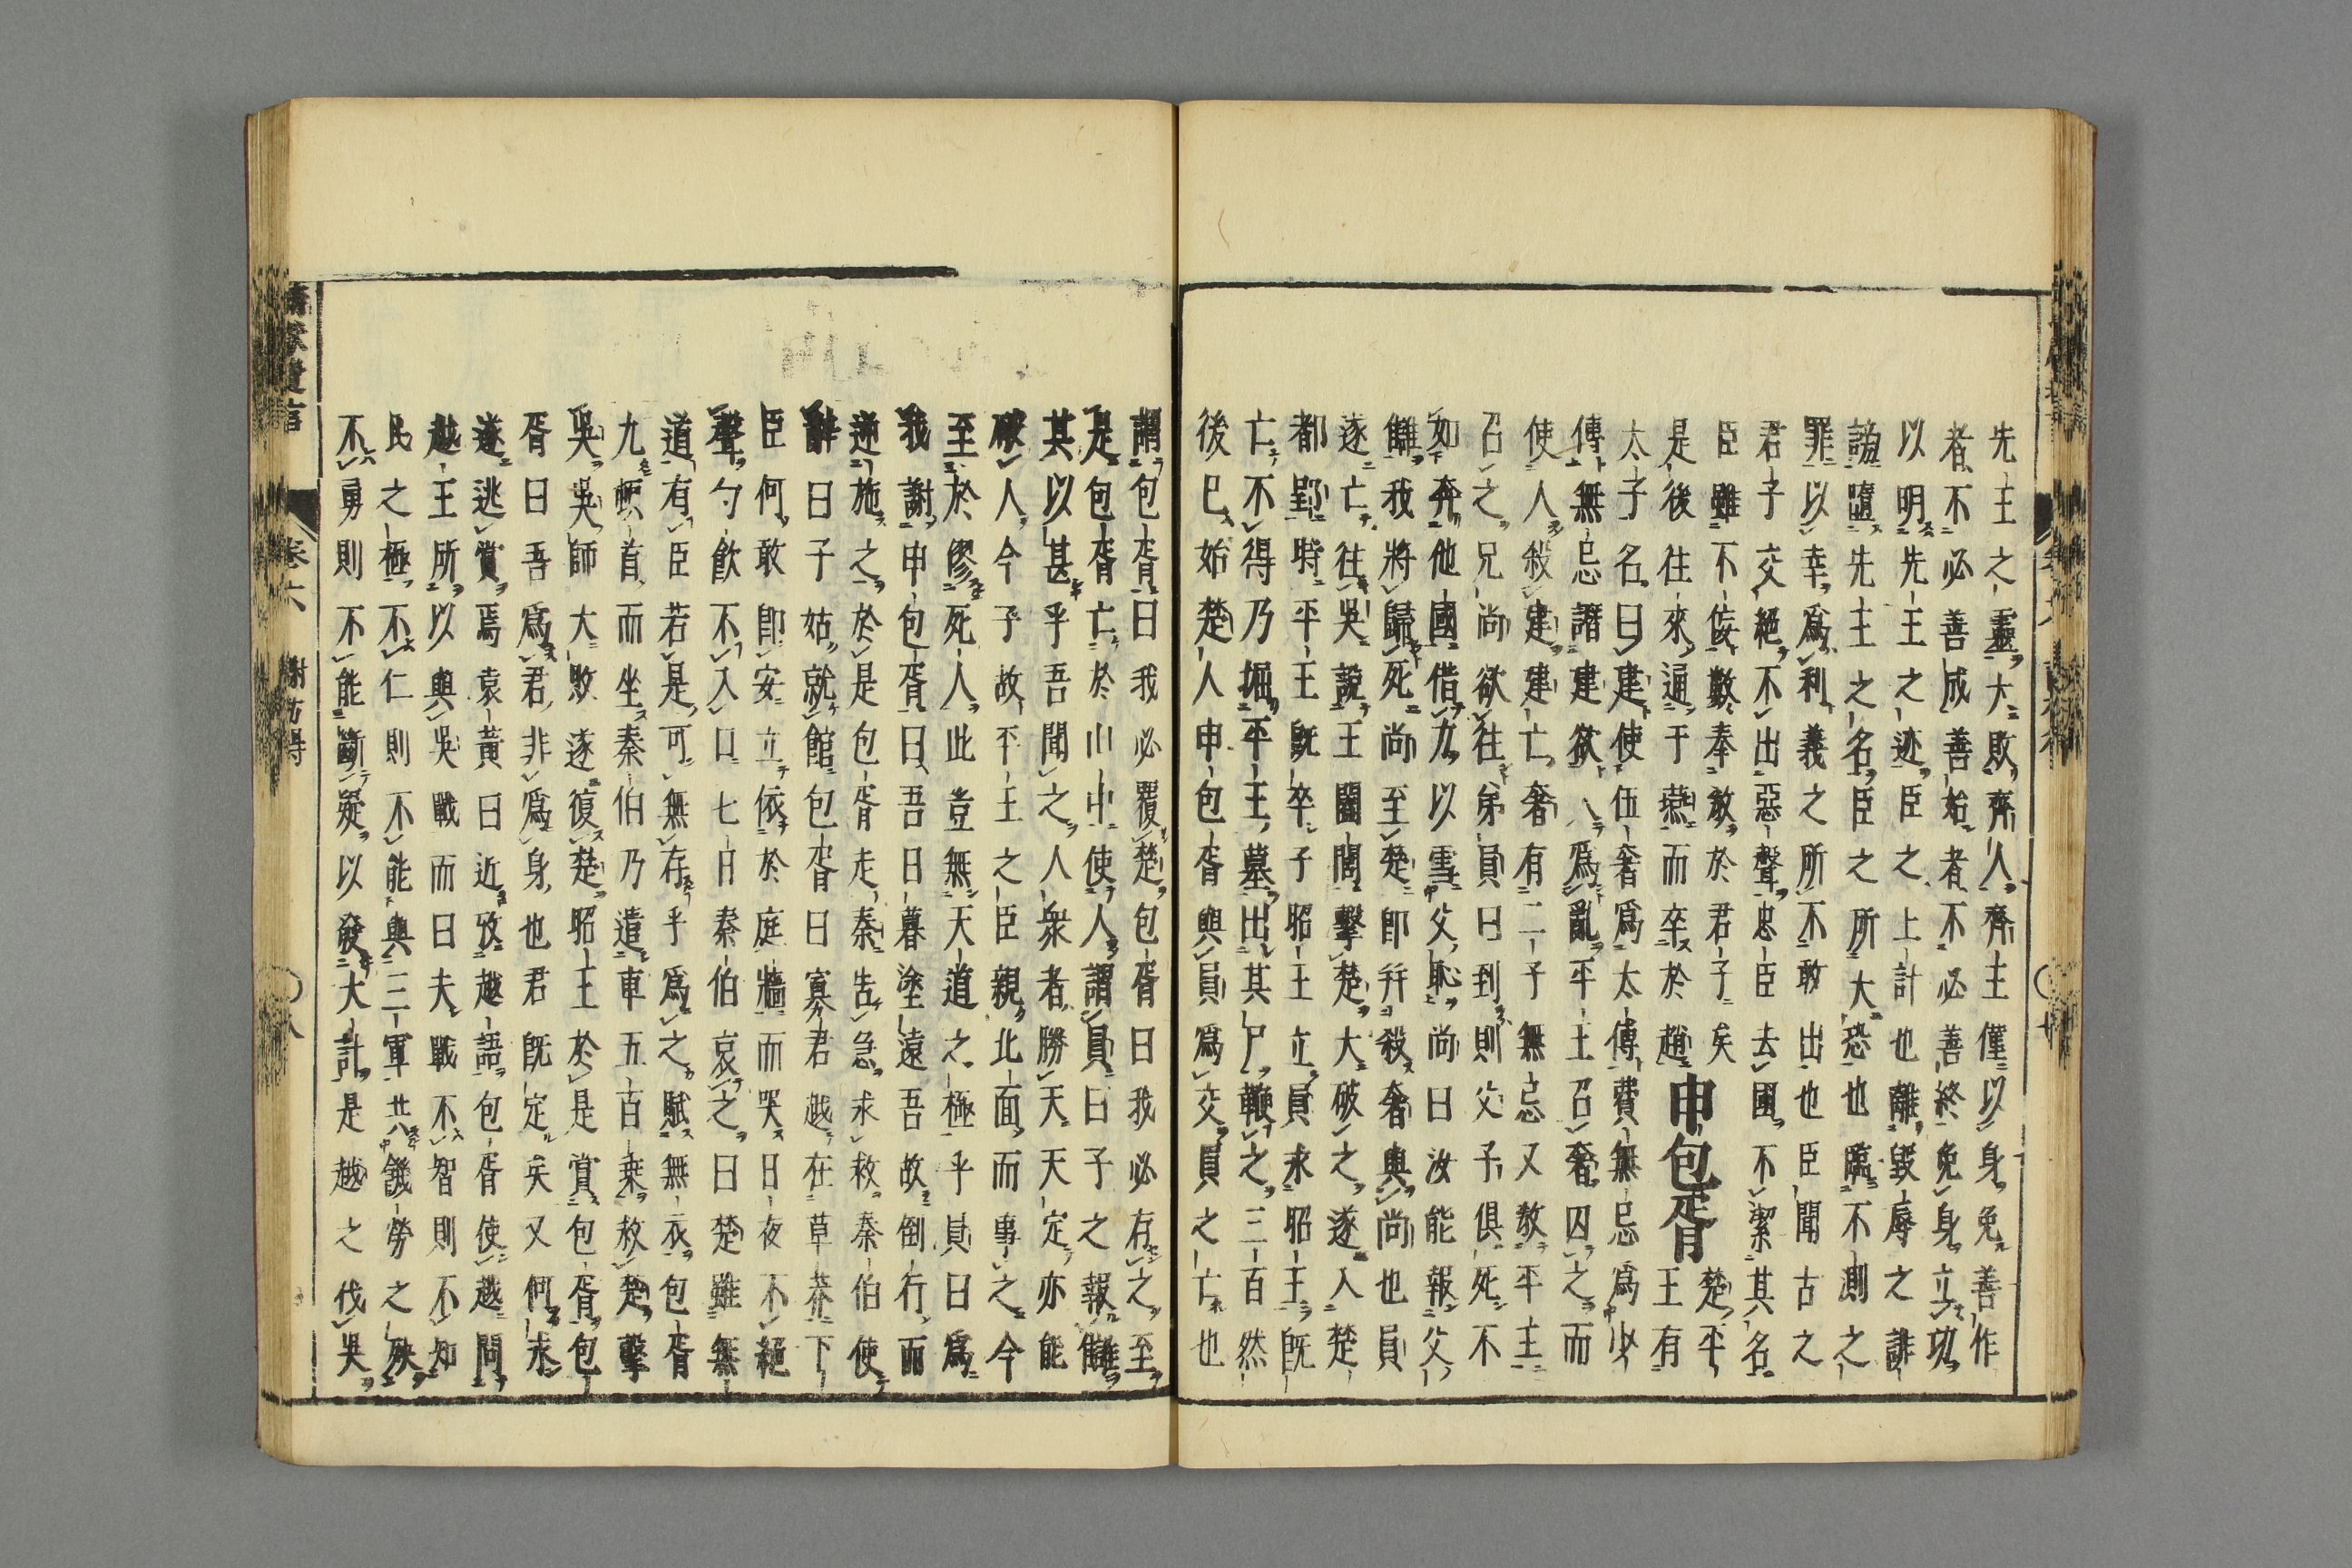 先王之靈大敗齊人齊王僅以身免善作
者不必善成善始者不必善終免身立功
以明先王之迹臣之上計也離毀辱之誹
謗墮先王之名臣之所大恐也臨不測之
罪以幸爲利義之所不敢出也臣聞古之
君子交絕不出惡聲忠臣去國不潔其名
臣雖不佞數奉教於君子矣
是後往來通于燕而卒於趙
申包胥
楚平
王有
太子名曰建使伍奢爲太傅費無忌爲少
傅無忌譖建欲入爲亂平王召奢囚之而
使人殺建建亡奢有二子無忌又教平王
召之兄尚欲往弟員曰到則父子俱死不
如奔他國借力以雪父恥尚曰汝能報父
讎我將歸死尚至楚卽幷殺奢與尚也員
遂亡往吳說王闔閭擊楚大破之遂入楚
都郢時平王旣卒子昭王立員求昭王旣
亡不得乃掘平王墓出其尸鞭之三百然
後已始楚人申包胥與員爲交員之亡也
謂包胥曰我必覆楚包胥曰我必存之至
是包胥亡於山中使人謂員曰子之報讎
其以甚乎吾聞之人衆者勝天天定亦能
破人今子故平王之臣親北面而事之今
至於僇死人此豈無天道之極乎員曰爲
我謝申包胥曰吾日暮塗遠吾故倒行而
逆施之於是包胥走秦告急求救秦伯使
辭曰子姑就館包胥曰寡君越在草莽下
臣何敢卽安立依於庭牆而哭日夜不絕
聲勺飮不入口七日秦伯哀之曰楚雖無
道有臣若是可無存乎爲之賦無衣包胥
九頓首而坐秦伯乃遣車五百乘救楚擊
吳吳師大敗遂復楚昭王於是賞包胥包
胥曰吾爲君非爲身也君旣定矣又何求
遂逃賞焉袁黃曰近攷越語包胥使越問
越王所以與吳戰而曰夫戰不智則不知
民之極不仁則不能與三軍共饑勞之殃
不勇則不能斷疑以發大計是越之伐吳
卷六
謝枋得
八